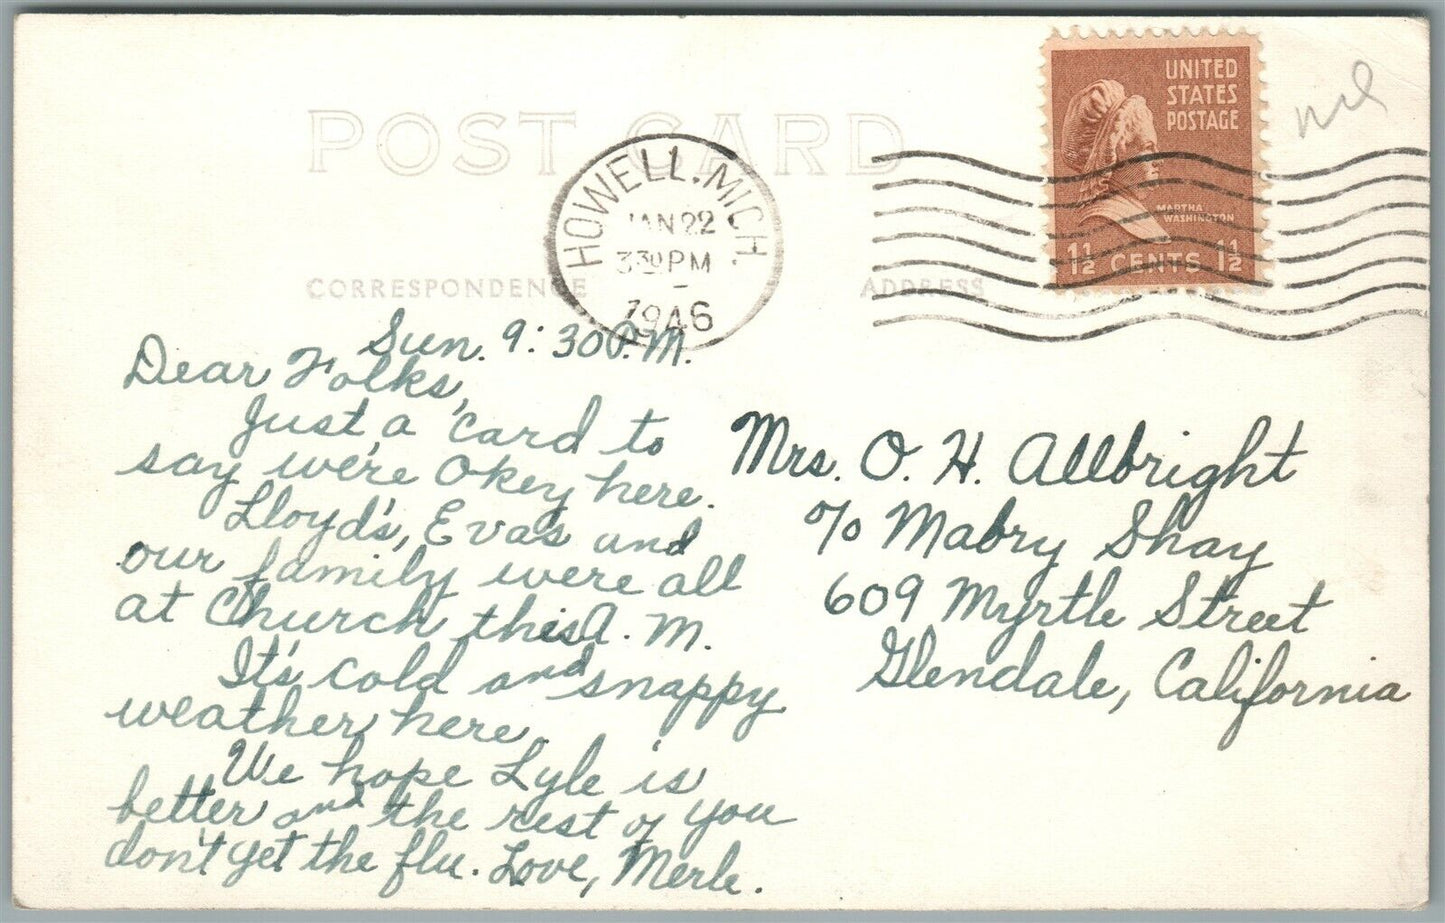 POST CARD
UNITED
STATES
POSTAGE
MARTHA
WASHINGTON
1½ CENTS 1½
HOWELL, MICH.
JAN 22
3 30 PM
1946
CORRESPONDENCE
ADDRESS
Sun. 9:30 P.M.
Dear Folks,
Just a card to
say we're okey here.
Lloyd's, Eva's and
our family were all
at Church this A.M.
It's cold and snappy
weather here.
We hope Lyle is
better and the rest of you
don't get the flu. Love, Merle.
Mrs. O. H. Allbright
c/o Mabry Shay
609 Myrtle Street
Glendale, California